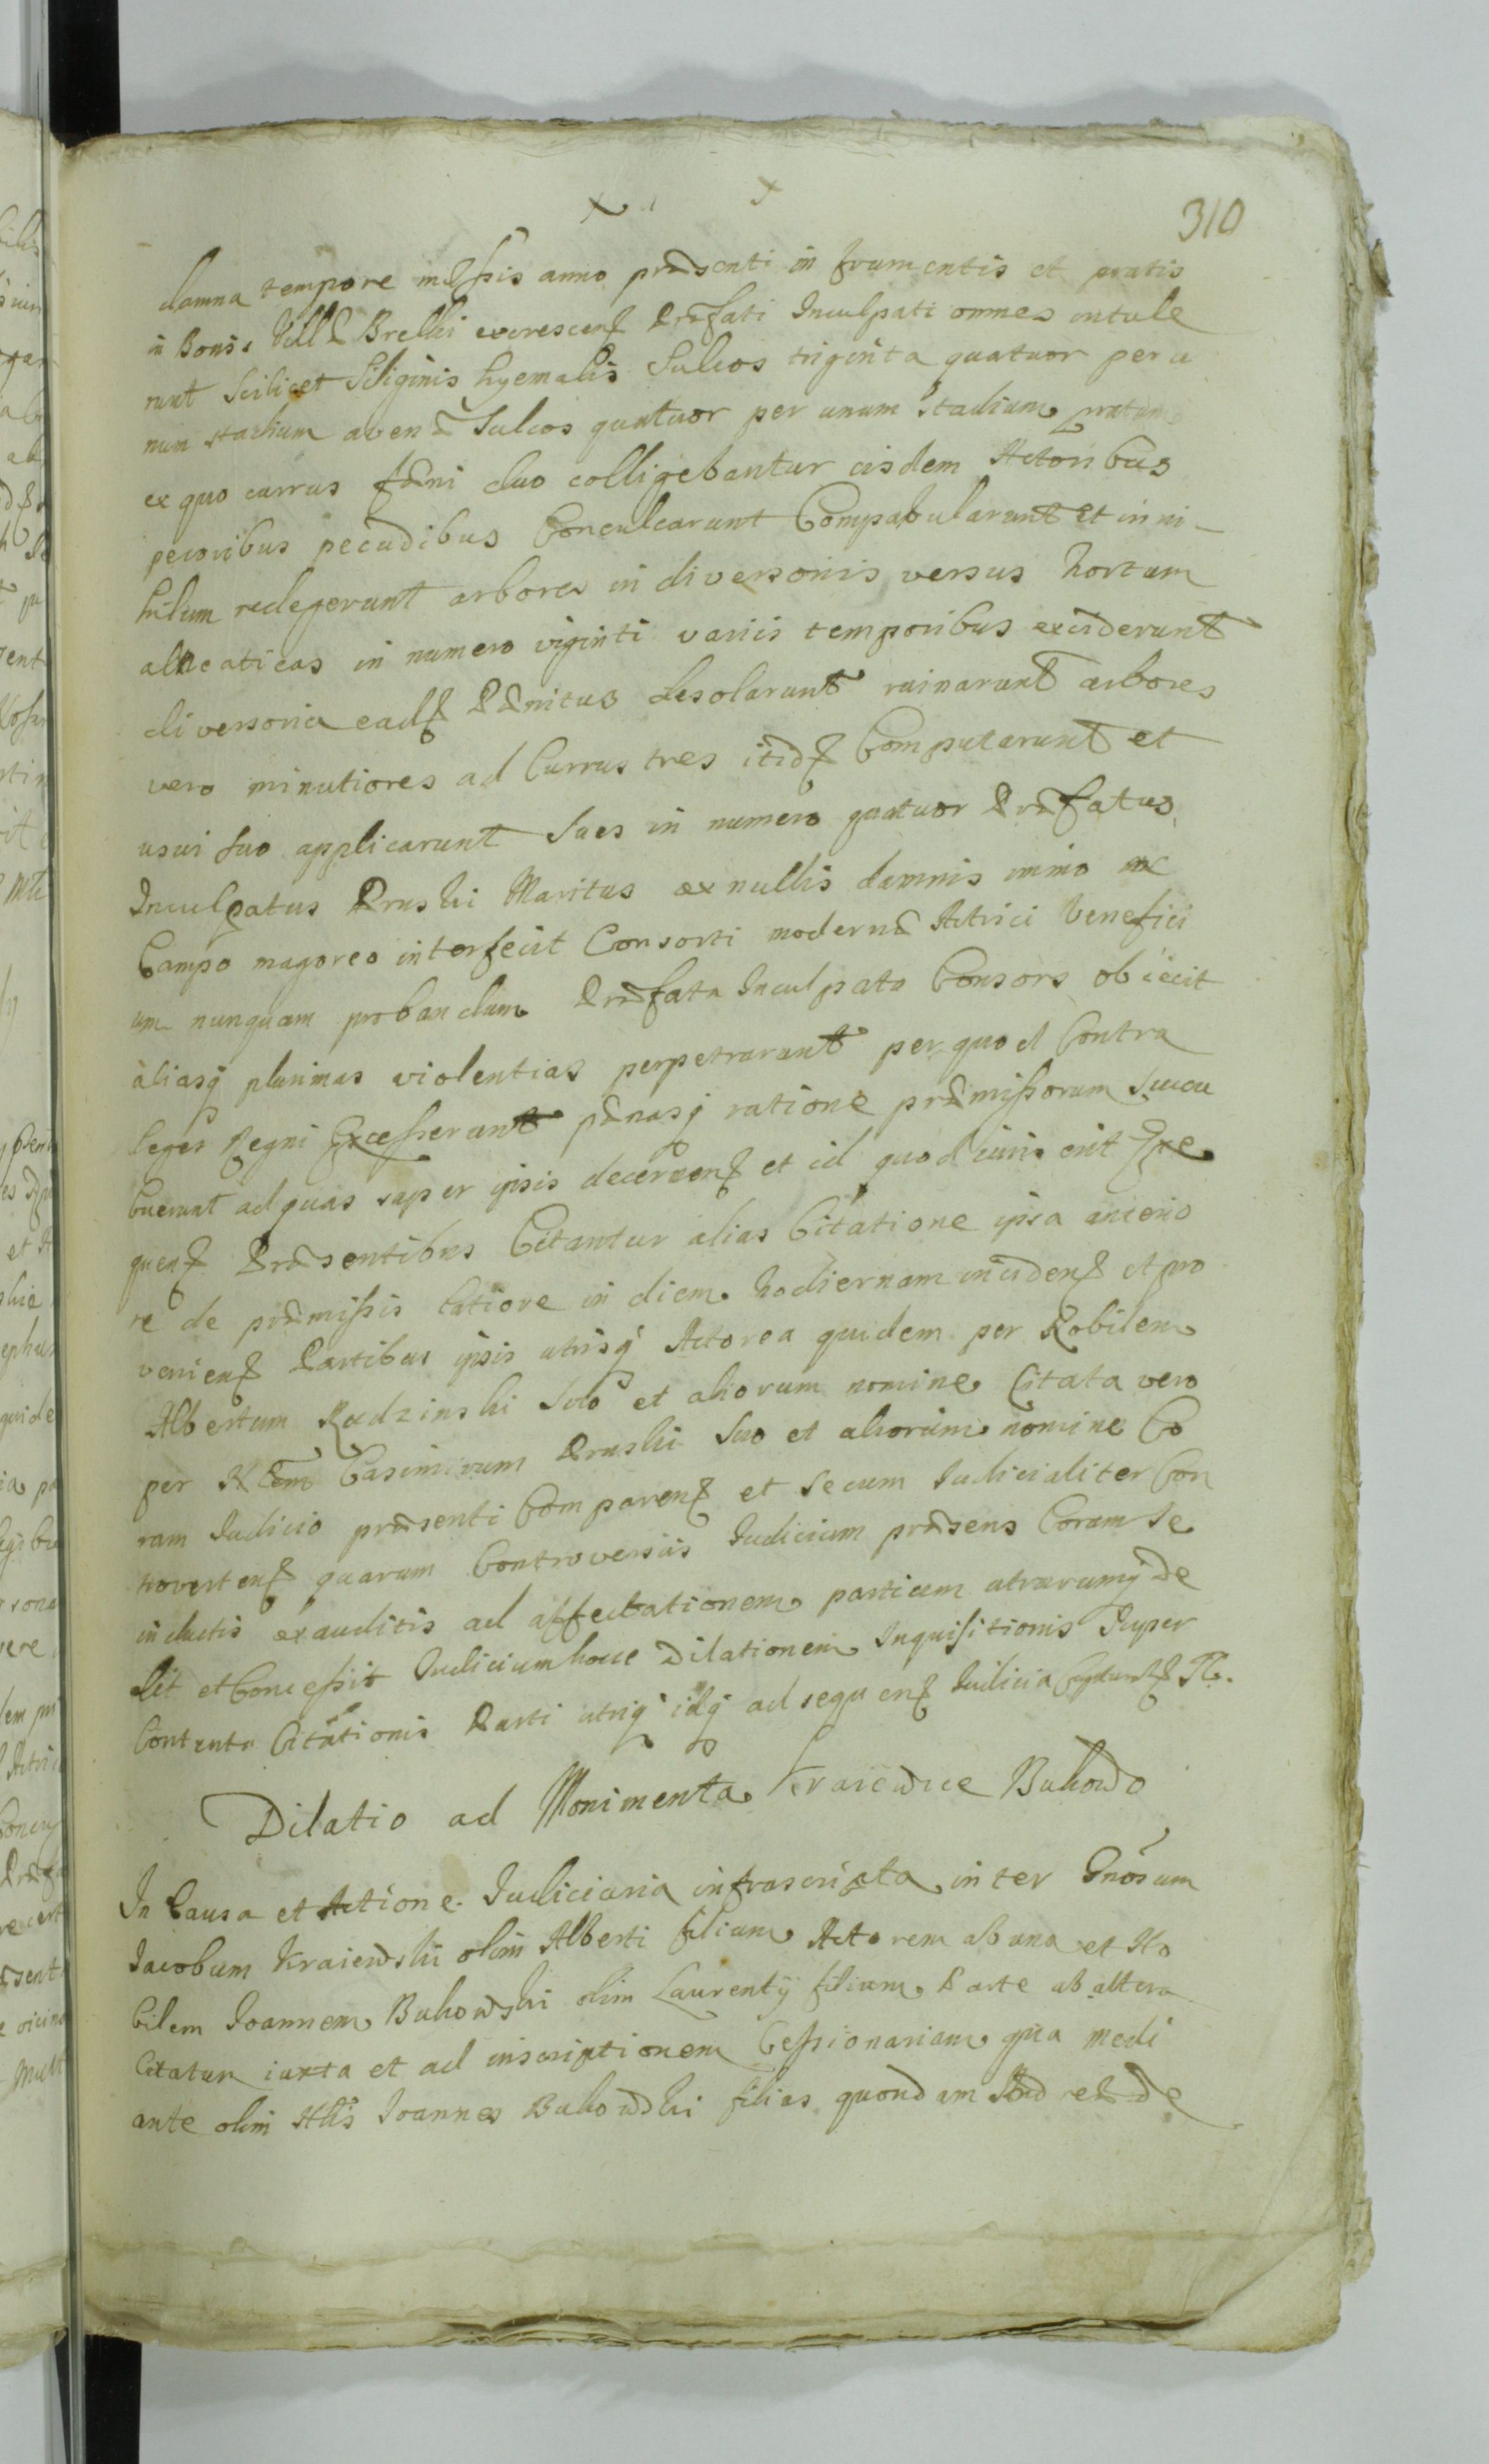 310
damna tempore messis anno præsenti in frumentis et pratis
in Bonis Villæ Brelki excrescen. Præfati Inculpati omnes intule
runt Scilicet Siliginis hyemalis Sulcos triginta quatuor per u
num stadium avenæ Sulcos quatuor per unum stadium pratum
ex quo currus fæni duo colligebantur eisdem Actoribus
pecoribus pecudibus Conculcarunt Compabularunt Et in ni-
hilum redegerunt arbores in diversoriis versus hortum
in numero viginti variis temporibus exciderunt
diversoria ead. Pænitus desolarunt ruinarunt arbores
vero minutiores ad Currus tres itid. Computarunt et
usui suo applicarunt Sues in numero quatuor Præfatus
Inculpatus Pruski Maritus ex nullis damnis immo
Campo magoreo interfecit Consorti modernæ Actrici Venefici
um nunquam probandum Præfata Inculpata Consors obiecit
aliasq plurimas violentias perpetrarunt per quod Contra
leges Regni Excesserunt pænasq ratione præmissorum Succu
buerunt ad quas super ipsis decernen. et id quod iuris erit Exe
quen. Præsentibus Citantur alias Citatione ipsa anterio
re de præmissis latiore in diem hodiernam inciden. et pro
venien. Partibus ipsis utrisq Actorea quidem per Nobilem
Albertum Rudzinski Suo et aliorum nomine Citata vero
per Nlem Casimirum Pruski Suo et aliorum nomine Co
ram Iudicio præsenti Comparen. et Secum Iudicialiter Con
troverten. quarum Controversiis Iudicium præsens Coram Se
inductis exauditis ad affectationem partium utrarumq de
dit et Concessit Iudicium hocce Dilationem Inquisitionis Super
Contenta Citationis Parti utriq idq ad sequen. Iudicia
Dilatio ad Monimenta Kraiewice Bukowo
In Causa et Actione Iudiciaria infrascripta inter Gnosum
Iacobum Kraiewski olim Alberti filium Actorem ab una et No
bilem Ioannem Bukowski olim Laurentij filium Parte ab altera
Citatum iuxta et ad inscriptionem Cessionariam qua medi
ante olim Nlis Ioannes Bukowski filius quondam